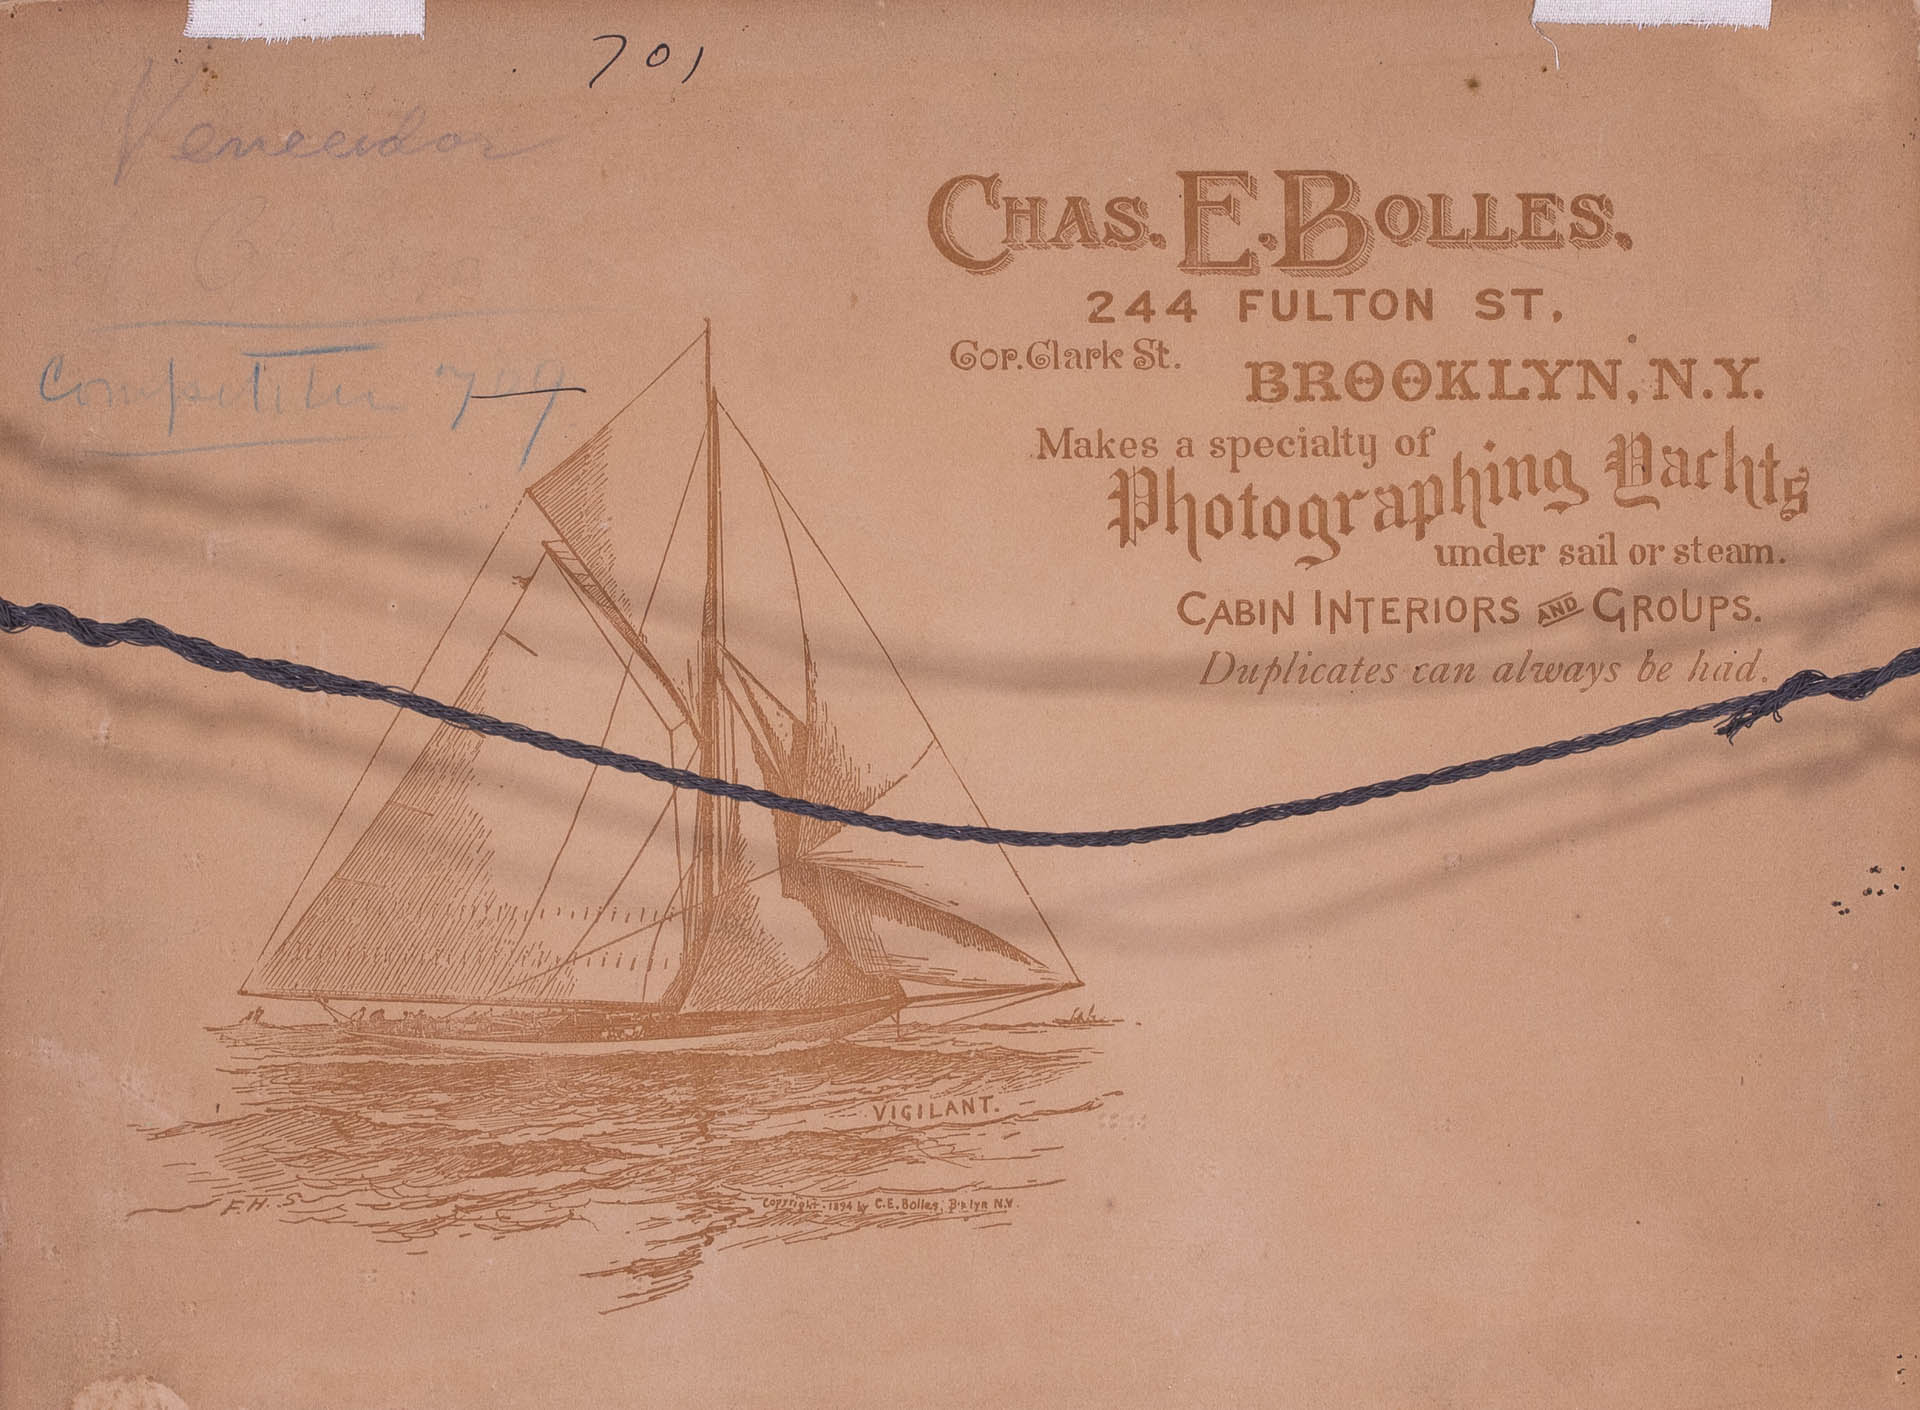 701
Vencedor
CHAS. E. BOLLES,
244 FULTON ST,
Cor. Clark St.
BROOKLYN, N.Y.
Makes a specialty of
Photographing Yachts
under sail or steam.
CABIN INTERIORS AND GROUPS.
Duplicates can always be had.
VIGILANT.
F.H.S
Copyright 1894 by C.E. Bolles, B'klyn N.Y.